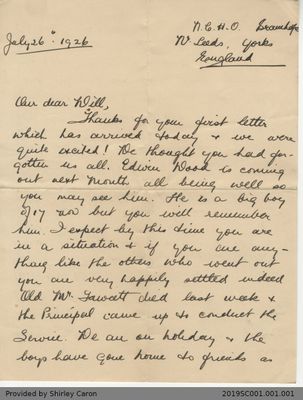 N.C.H.O. Bramhope
July 26th 1926
Nr Leeds, Yorks
England
Our dear Will,
Thanks for your first letter
which has arrived today & we were
quite excited! We thought you had for-
gotten us all. Edwin Wood is coming
out next month all being well so
you may see him. He is a big boy
of 17 now but you will remember
him. I expect by this time you are
in a situation & if you are any-
thing like the others who went out
you are very happily settled indeed
Old Mr Fawcett died last week &
the Principal came up to conduct the
Service. We are on holiday & the
boys have gone home to friends as
Provided by Shirley Caron
2019SC001.001.001